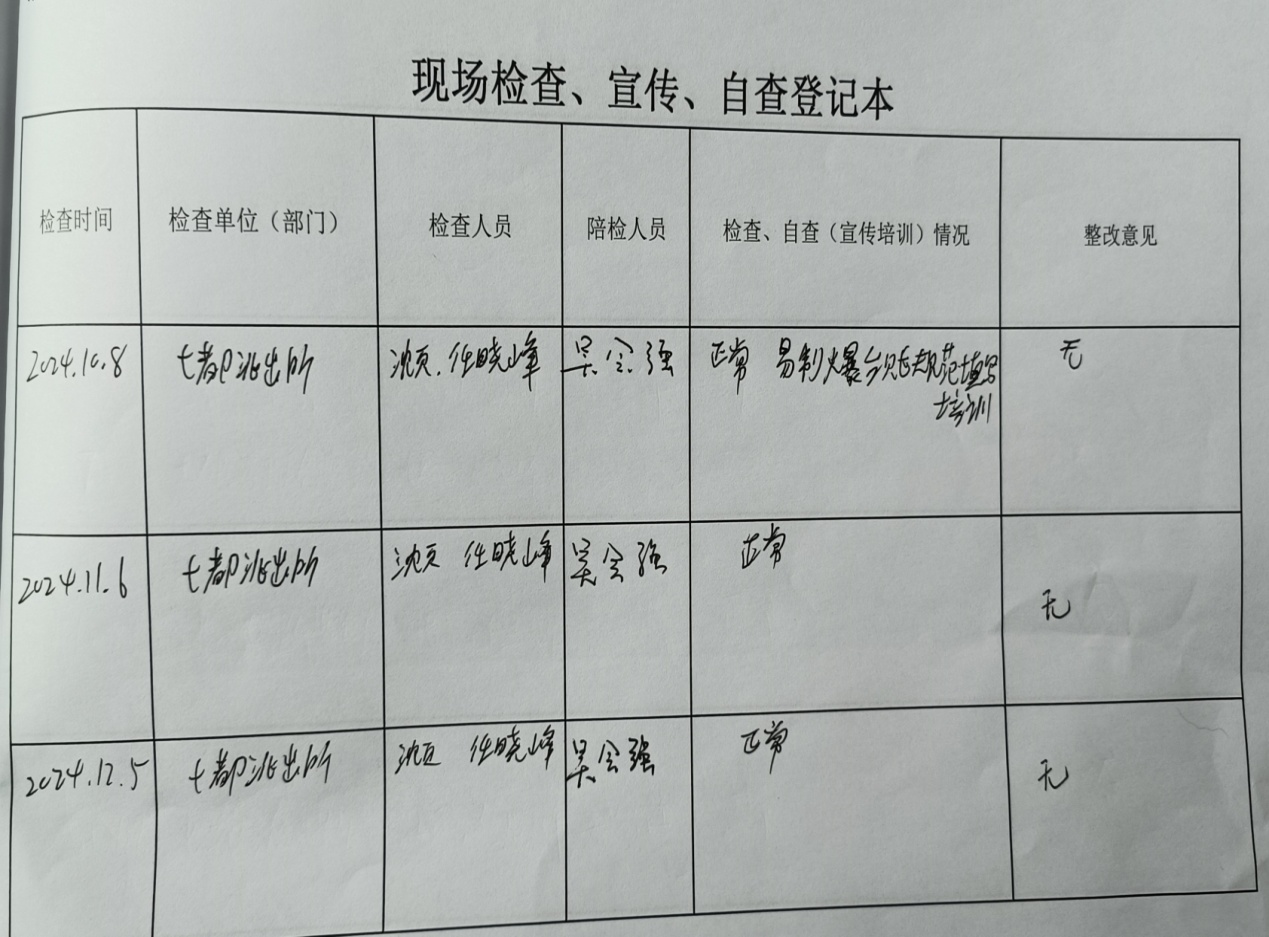 现场检查、宣传、自查登记本
检查时间 检查单位（部门） 检查人员 陪检人员 检查、自查（宣传培训）情况 整改意见
2024.10.8 七都派出所 沈页.任晓峰 吴会强 正常 易制爆台账规范填写 无
培训
2024.11.6 七都派出所 沈页 任晓峰 吴会强 正常 无
2024.12.5 七都派出所 沈页 任晓峰 吴会强 正常 无